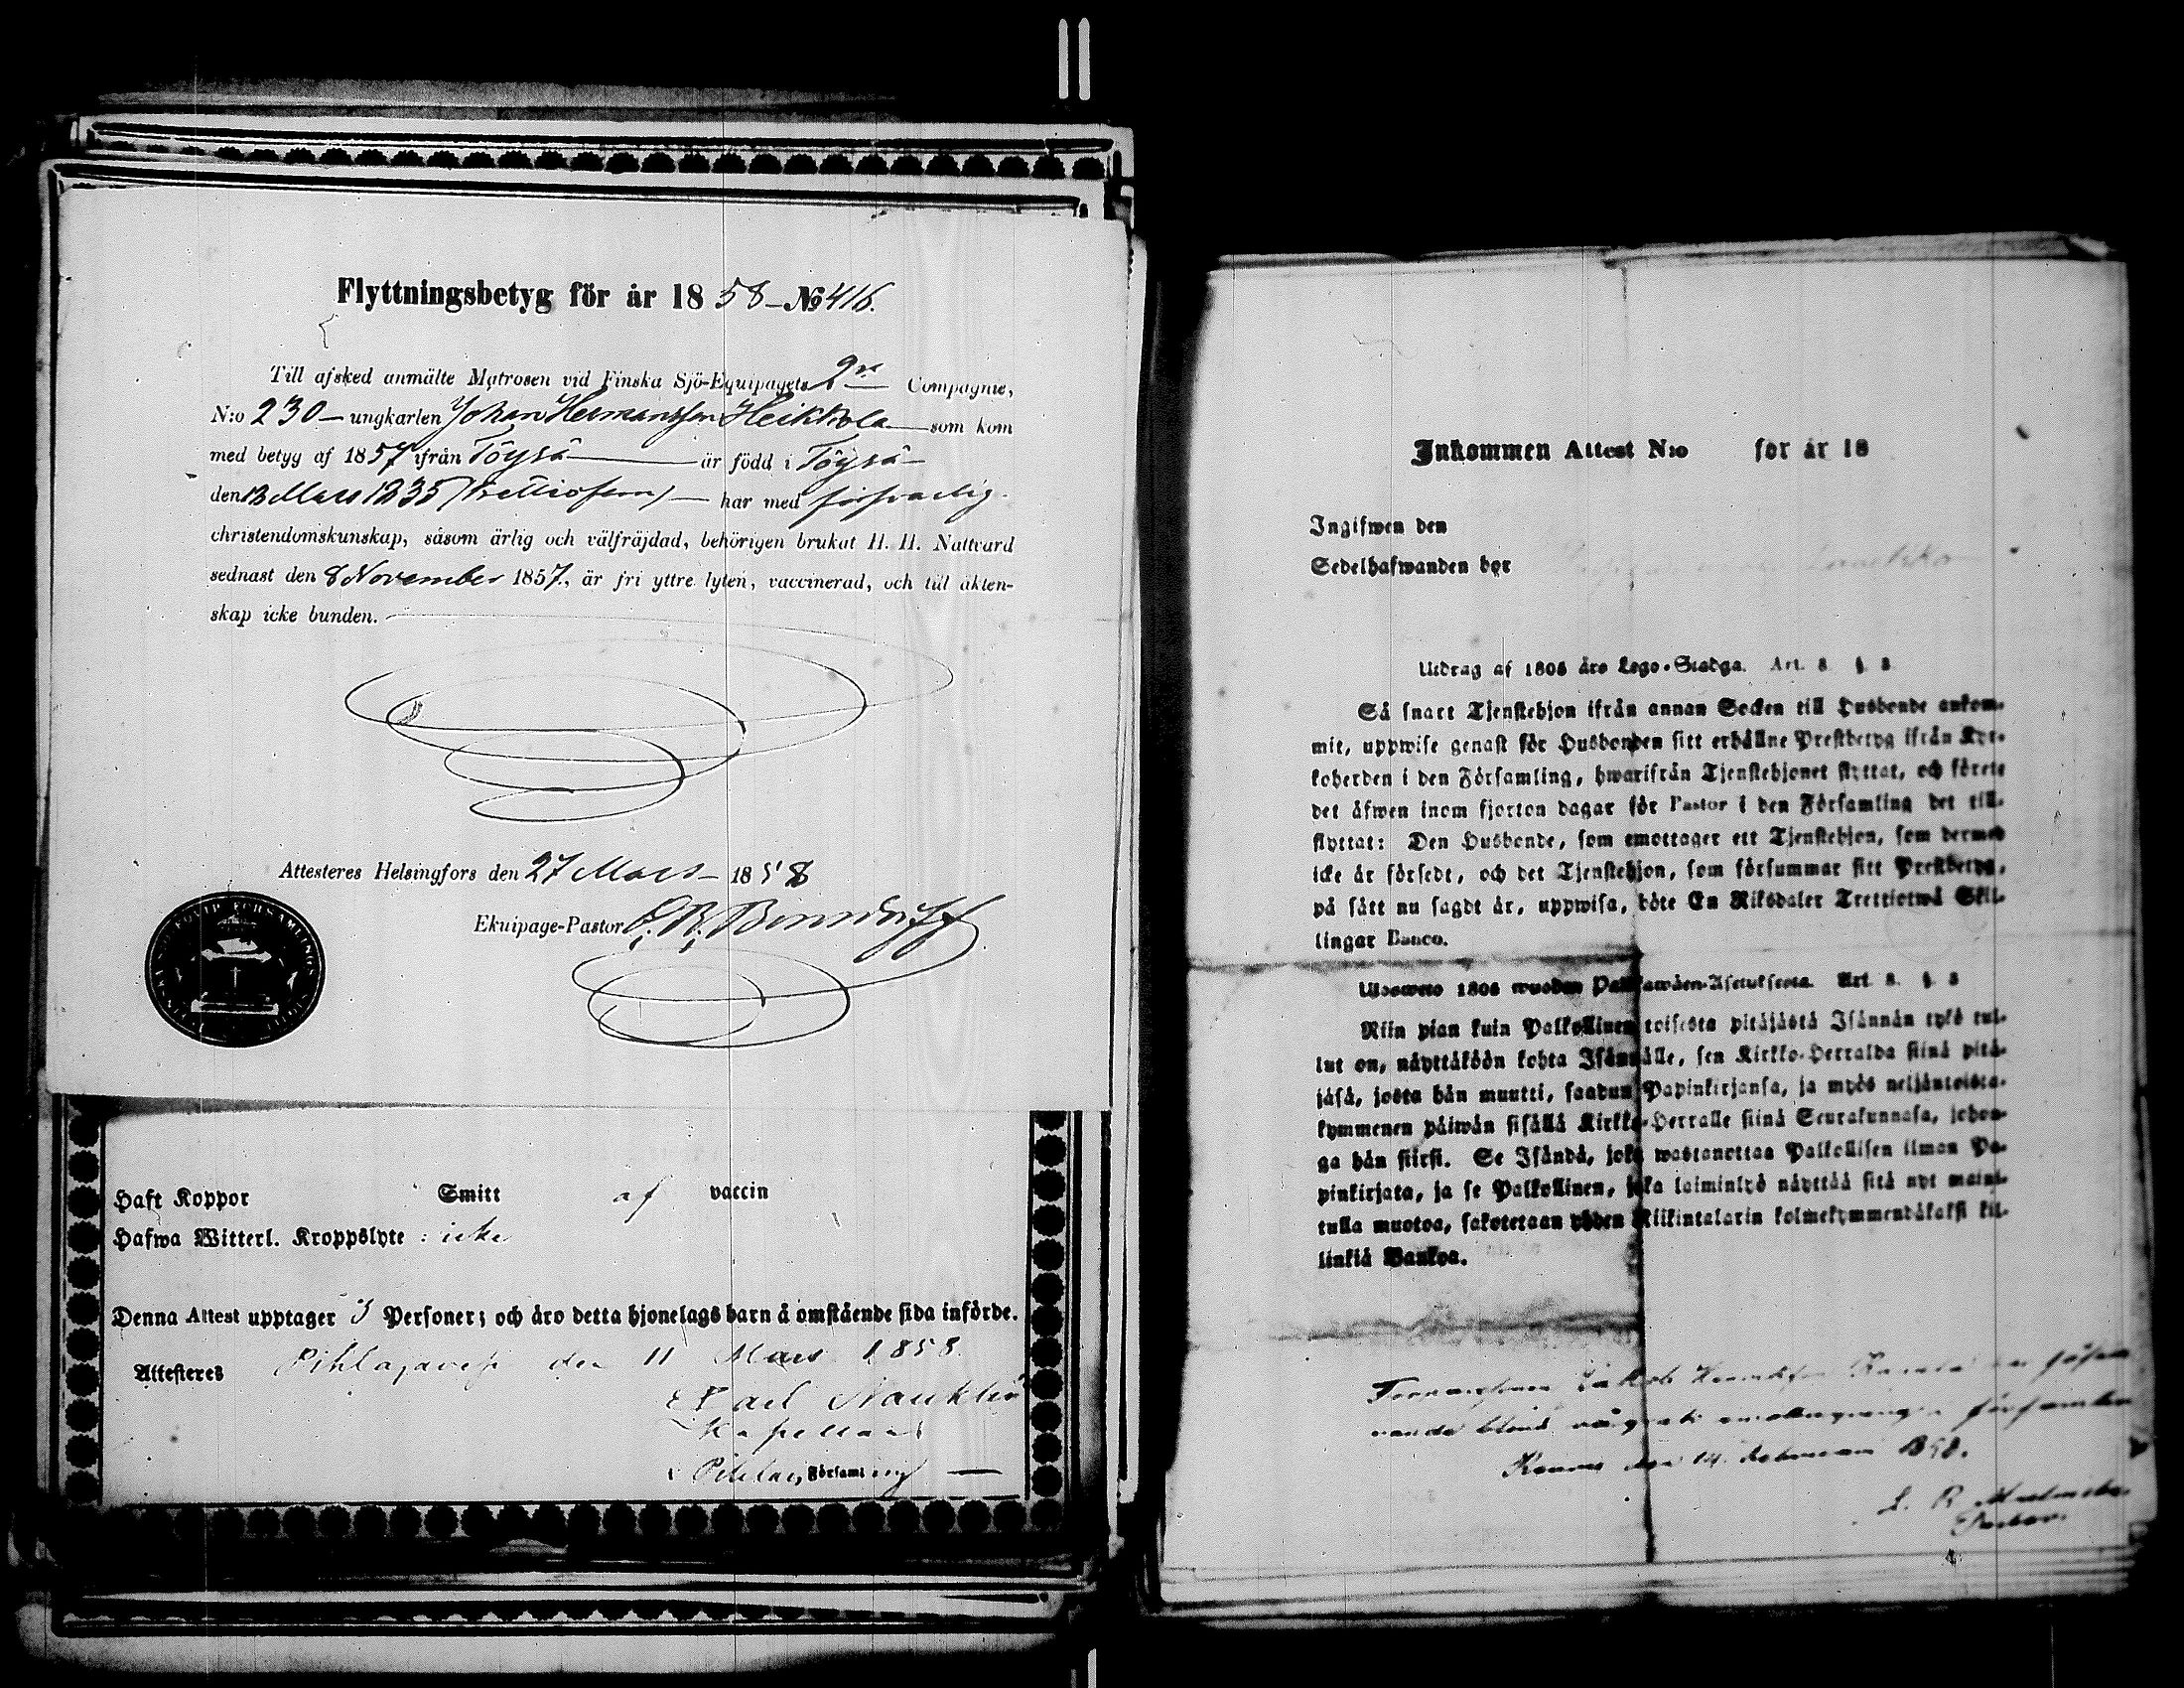 Flyttningsbetyg för år 1858 – No 416.
Till afsked anmälte Matrosen vid Finska Sjö-Equipagets 2ra Compagnie,
N:o 230 – ungkarlen Johan Hermansson Heikkola som kom
med betyg af 1857 ifrån Töysä är född i Töysä –
den 13 Mars 1835 (trettiofem) – har med försvarlig
christendomskunskap, såsom ärlig och välfräjdad, behörigen brukat H. H. Nattvard
sednast den 8 November 1857, är fri yttre lyten, vaccinerad, och till äkten-
skap icke bunden.
Attesteres Helsingfors den 27 Mars – 1858
Ekuipage-Pastor
Haft Koppor Smitt af vaccin
Hafwa Witterl. Kroppslyte : icke
Denna Attest upptager 3 Personer; och äro detta hjonelags barn å omstående sida införde.
Attesteres Pihlajavesi den 11 Mars 1858.
Karl
Kapellan
i Pihlaj. Församling
Inkommen Attest N:o för år 18
Ingifwen den
Sedelhafwanden bor
Utdrag af 1805 års Lego-Stadga. Art. 8 § 8
Så snart Tjenstehjon ifrån annan Socken till Husbonde ankom-
mit, uppwise genast för Husbonden sitt erhållne Prestbetyg ifrån Kyr-
koherden i den Församling, hwarifrån Tjenstehjonet flyttat, och förete
det äfwen inom fjorton dagar för Pastor i den Församling det till-
flyttat: Den Husbonde, som emottager ett Tjenstehjon, som dermed
icke är försedt, och det Tjenstehjon, som försummar sitt Prestbetyg,
på sätt nu sagdt är, uppwisa, böte En Riksdaler Trettiotwå Skil-
lingar Banco.
Ulosweto 1805 wuoden Palkkawäen-Asetuksesta. Art. 8. § 8
Niin pian kuin Palkollinen toisesta pitäjästä Isännän tykö tul-
lut on, näyttäköön kohta Isännälle, sen Kirkko-Herralda siinä pitä-
jäsä, josta hän muutti, saadun Papinkirjansa, ja myös neljäntoista-
kymmenen päiwän sisällä Kirkko-Herralle siinä Seurakunnasa, johon-
ga hän siirsi. Se Isändä, joka wastanottaa Palkollisen ilman Pa-
pinkirjata, ja se Palkollinen, joka laiminlyö näyttää sitä nyt maini-
tulla muotoa, sakotetaan yhden Riikintalarin kolmekymmendäkaksi kil-
linkiä Bankoa.
den 14 Februari 1858.
Pastor.